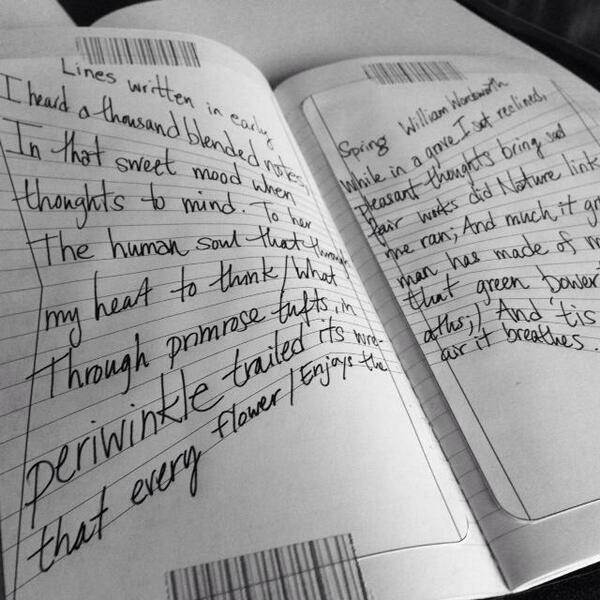 Lines written in early
I heard a thousand blended notes,
In that sweet mood when
thoughts to mind. To her
The human soul that through
my heart to think / What
Through primrose tufts, in
periwinkle trailed its wre-
that every flower / Enjoys the
Spring William Wordsworth
While in a grove I sat reclined,
pleasant thoughts bring sad
fair works did Nature link
me ran; And much it gr
man has made of m
that green bower
aths; / And 'tis
air it breathes.